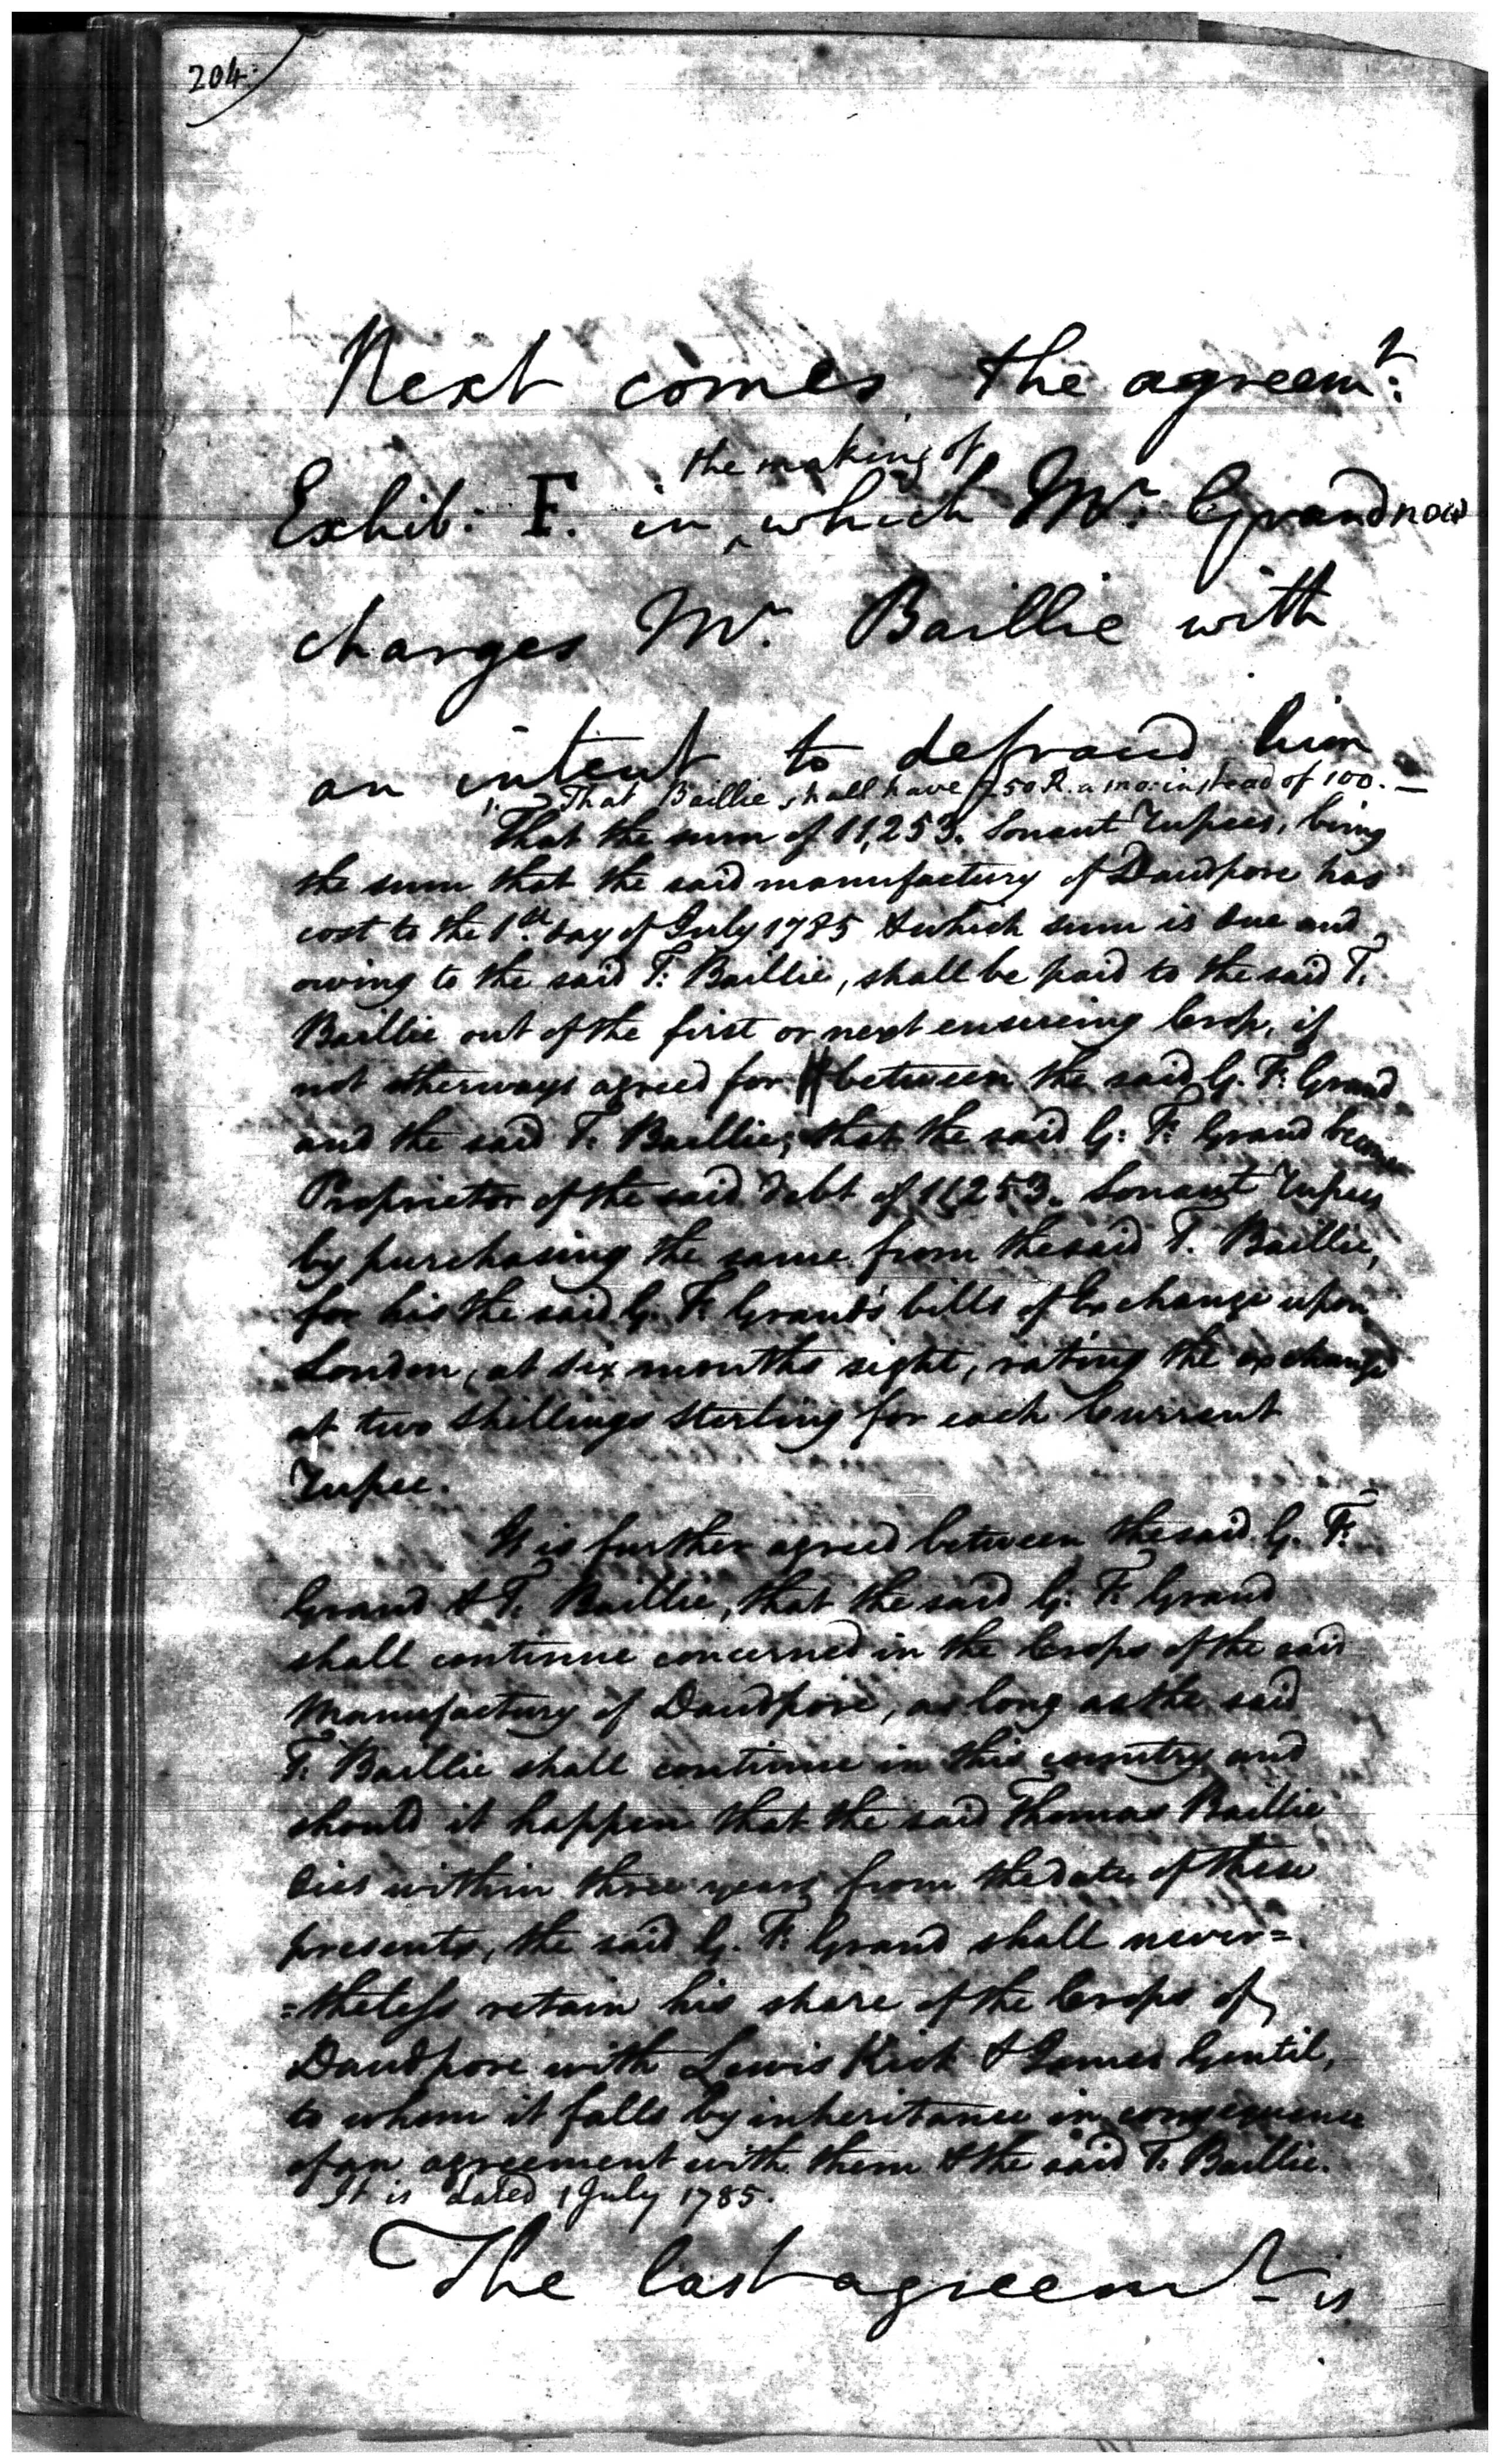 204
Next comes the agreemt:
the making of
Exhib: F. in ^ which Mr. Grand now
charges Mr. Baillie with
an intent to defraud him
That Baillie shall have 250 R. a mo: instead of 100. —
That the sum of 11,253. Sonaut Rupees, being
the sum that the said manufactury of Daudpore has
cost to the 1st. day of July 1785 & which sum is due and
owing to the said T: Baillie, shall be paid to the said T.
Baillie out of the first or next ensueing Crop, if
not otherways agreed for between the said G. F. Grand
and the said T. Baillie; that the said G: F. Grand became
Proprietor of the said debt of 11253. Sonaut Rupees
by purchasing the same from the said T. Baillie,
for his the said G. F. Grand's bills of Exchange upon
London, at six months sight, rating the exchange
at two shillings sterling for each Current
Rupee.
It is further agreed between the said G. F.
Grand & T. Baillie, that the said G. F. Grand
shall continue concerned in the Crops of the said
Manufactury of Daudpore, as long as the said
T. Baillie shall continue in this country and
should it happen that the said Thomas Baillie
dies within three years from the date of these
presents, the said G. F. Grand shall never=
=theless retain his share of the Crops of
Daudpore with Lewis Kick & James Gentil,
to whom it falls by inheritance in consequence
of an agreement with them & the said T. Baillie.
It is dated 1 July 1785.
The last agreemt is